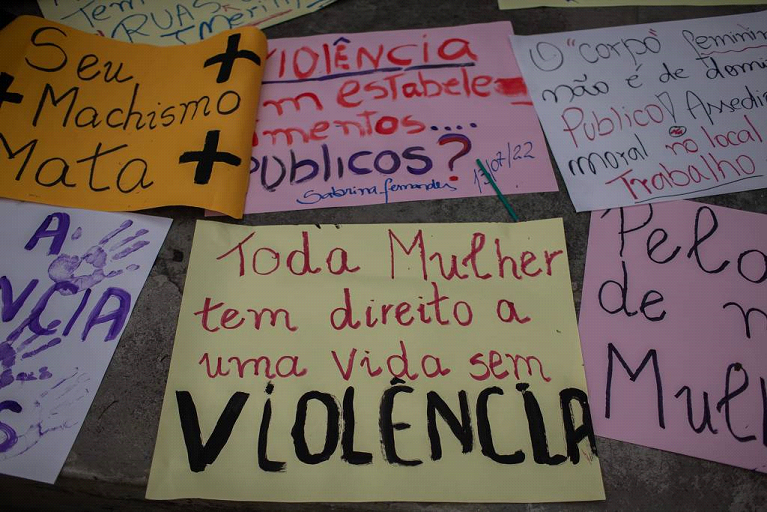 Tem
RUAS
Seu
Machismo
Mata
VIOLÊNCIA
em estabele
PÚBLICOS?
Sabrina fernandes
13/07/22
O "corpo feminino
não é de
Público! Assédio
moral no local
Trabalho
A
Toda Mulher
tem direito a
uma vida sem
VIOLÊNCIA
Pela
de